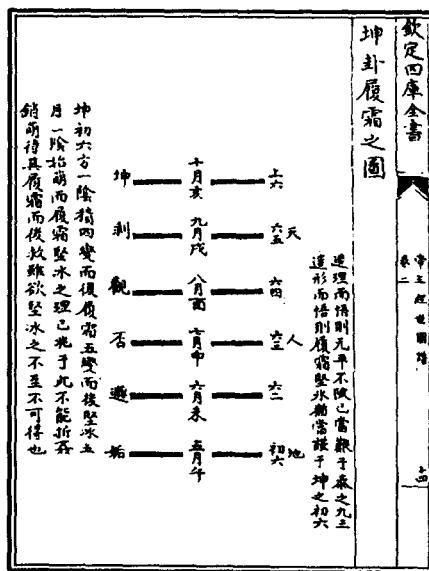 欽定四庫全書
帝王經世圖譜
卷二
十四
坤卦履霜之圖
逆理而悟則无平不陂已當艱于泰之九三
違形而悟則履霜堅氷猶當謹于坤之初六
上六
六五
天
六四
六三
人
六二
初六
地
十月亥
九月戌
八月酉
七月申
六月未
五月午
坤
剥
觀
否
遯
姤
坤初六方一隂積四變而後履霜五變而後堅冰五
月一隂始萌而履霜堅冰之理已兆于此不能折姦
銷萌待其履霜而後救雖欲堅冰之不至不可得也